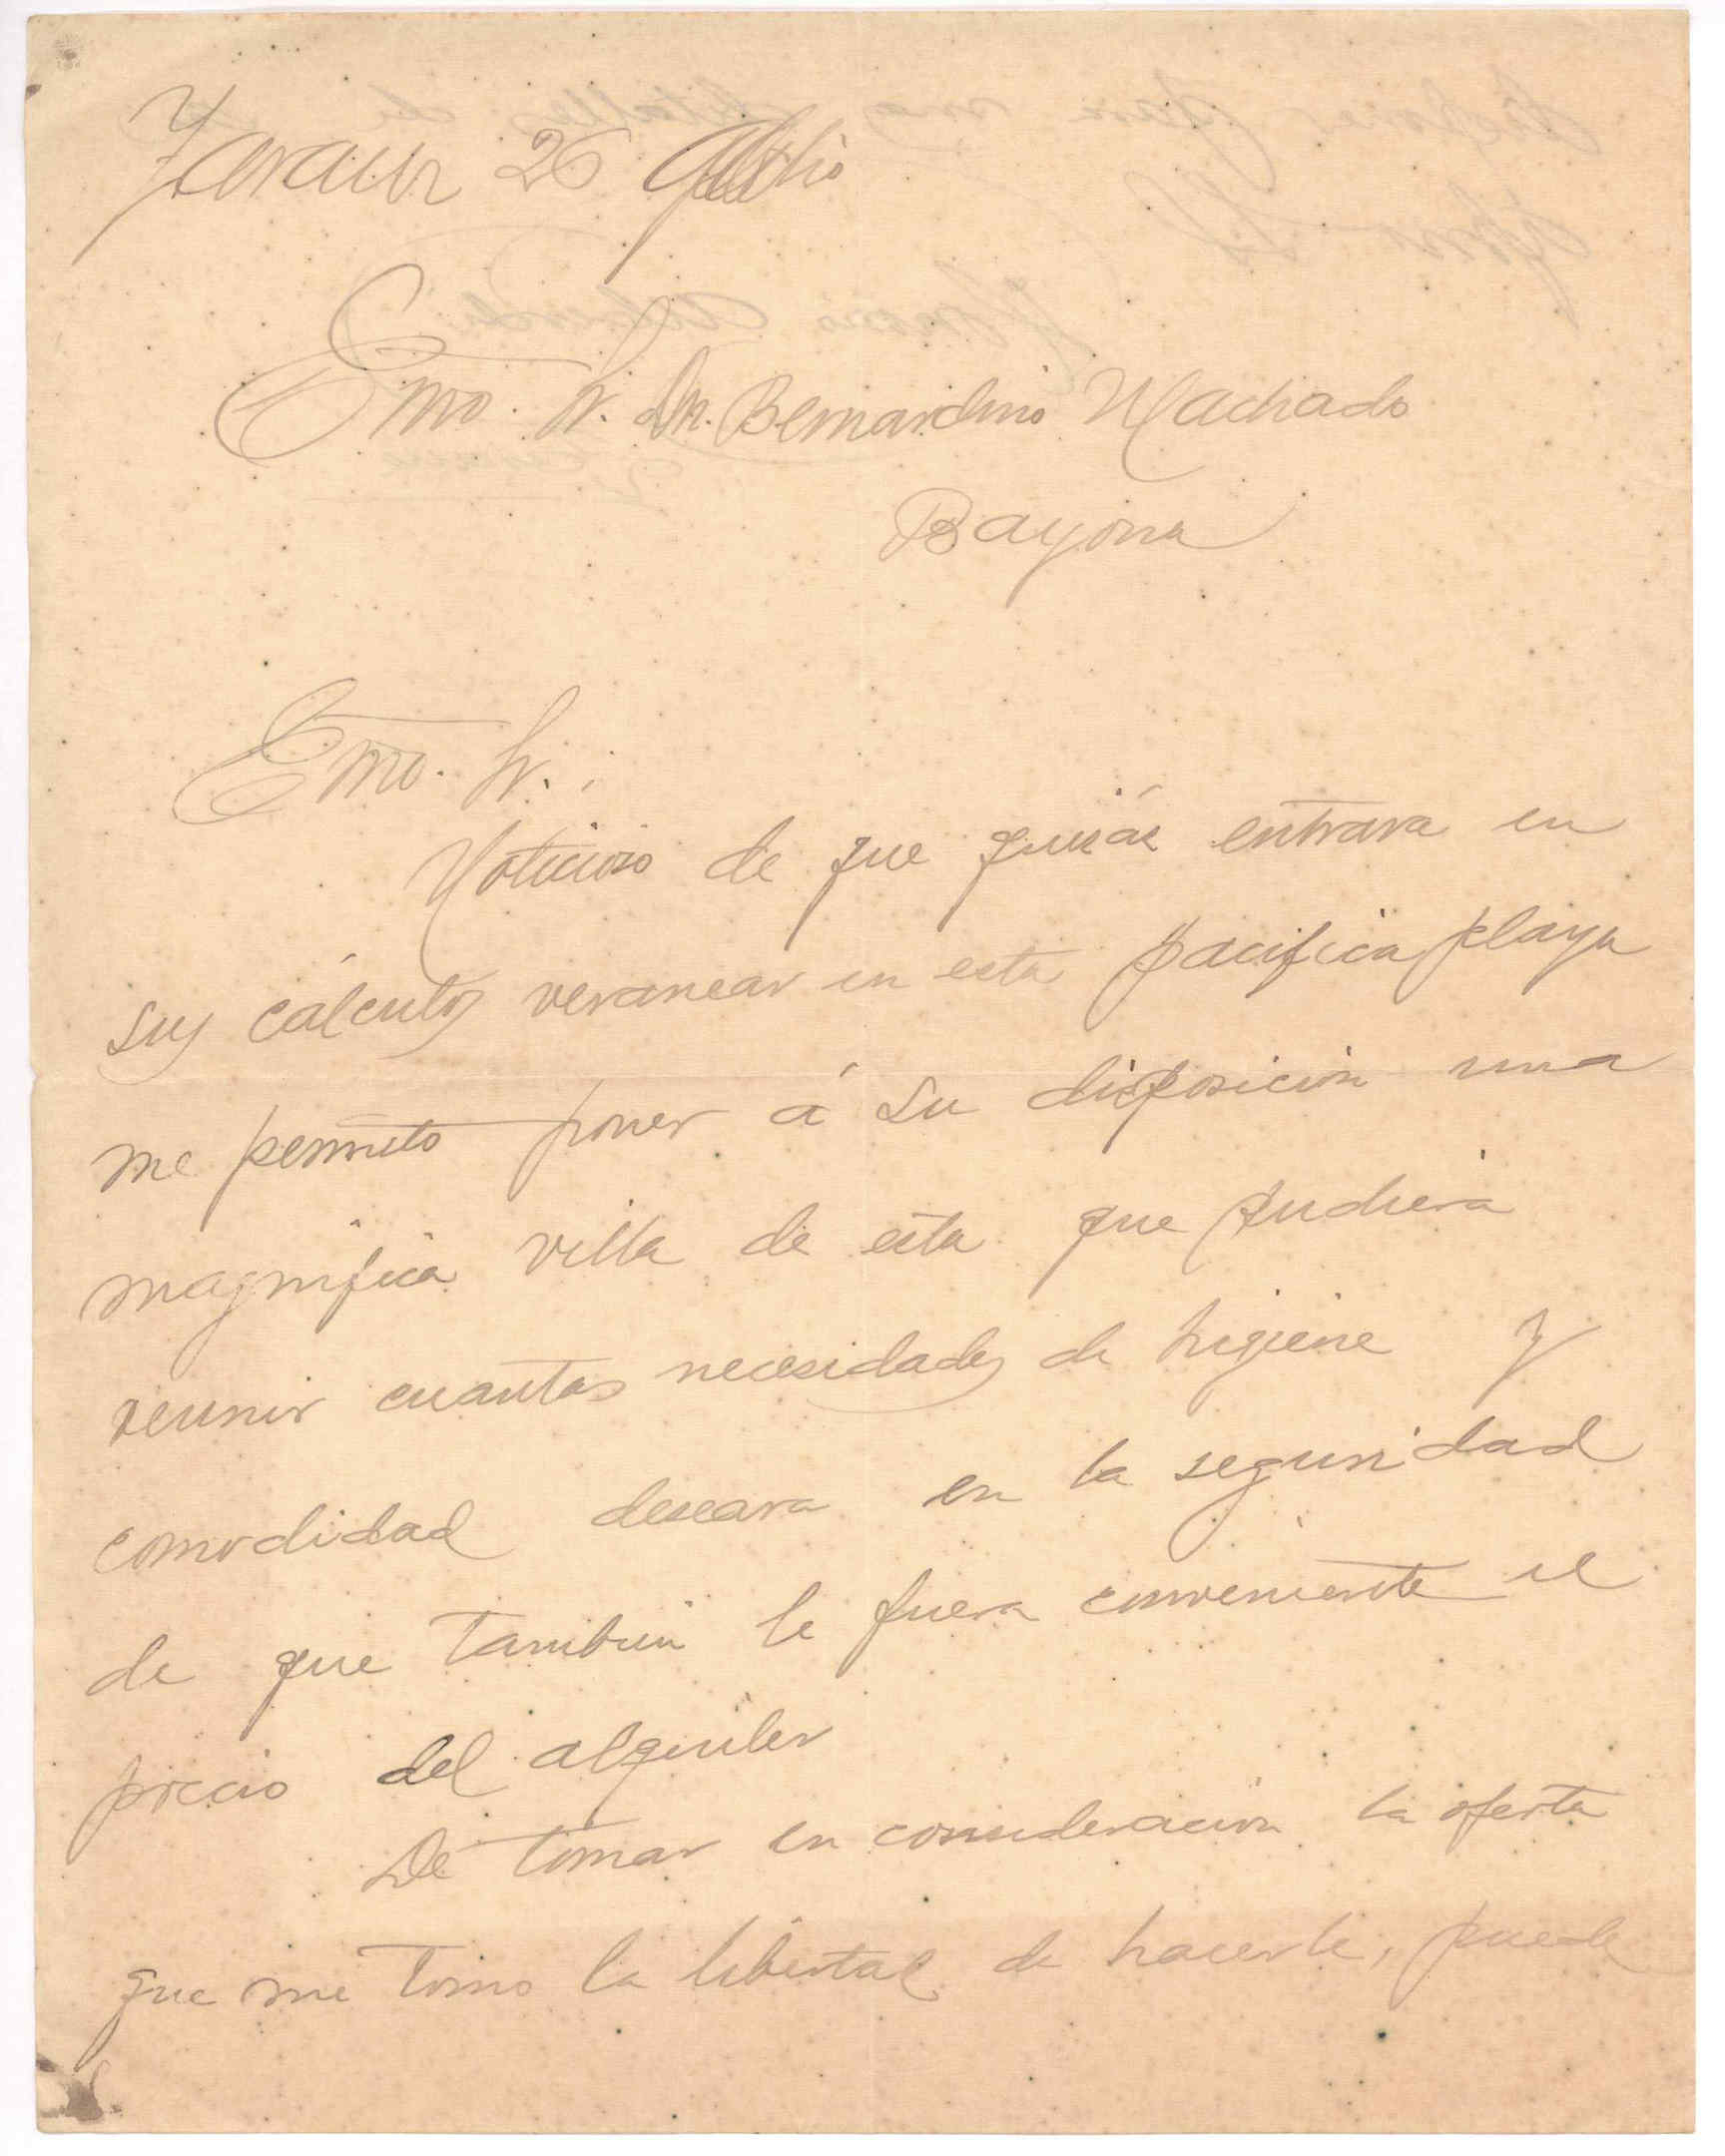 Zarauz 26 Julio
Exmo. Sr. Dn. Bernardino Machado
Bayona
Exmo. Sr. :
Noticioso de que quizás entrara en
sus cálculos veranear en esta pacifica playa
me permito poner á su disposición una
magnifica villa de esta que pudiera
reunir cuantas necesidades de higiene y
comodidad deseara en la seguridad
de que tambien le fuera conveniente el
precio del alquiler
De tomar en consideración la oferta
que me tomo la libertad de hacerle, puede